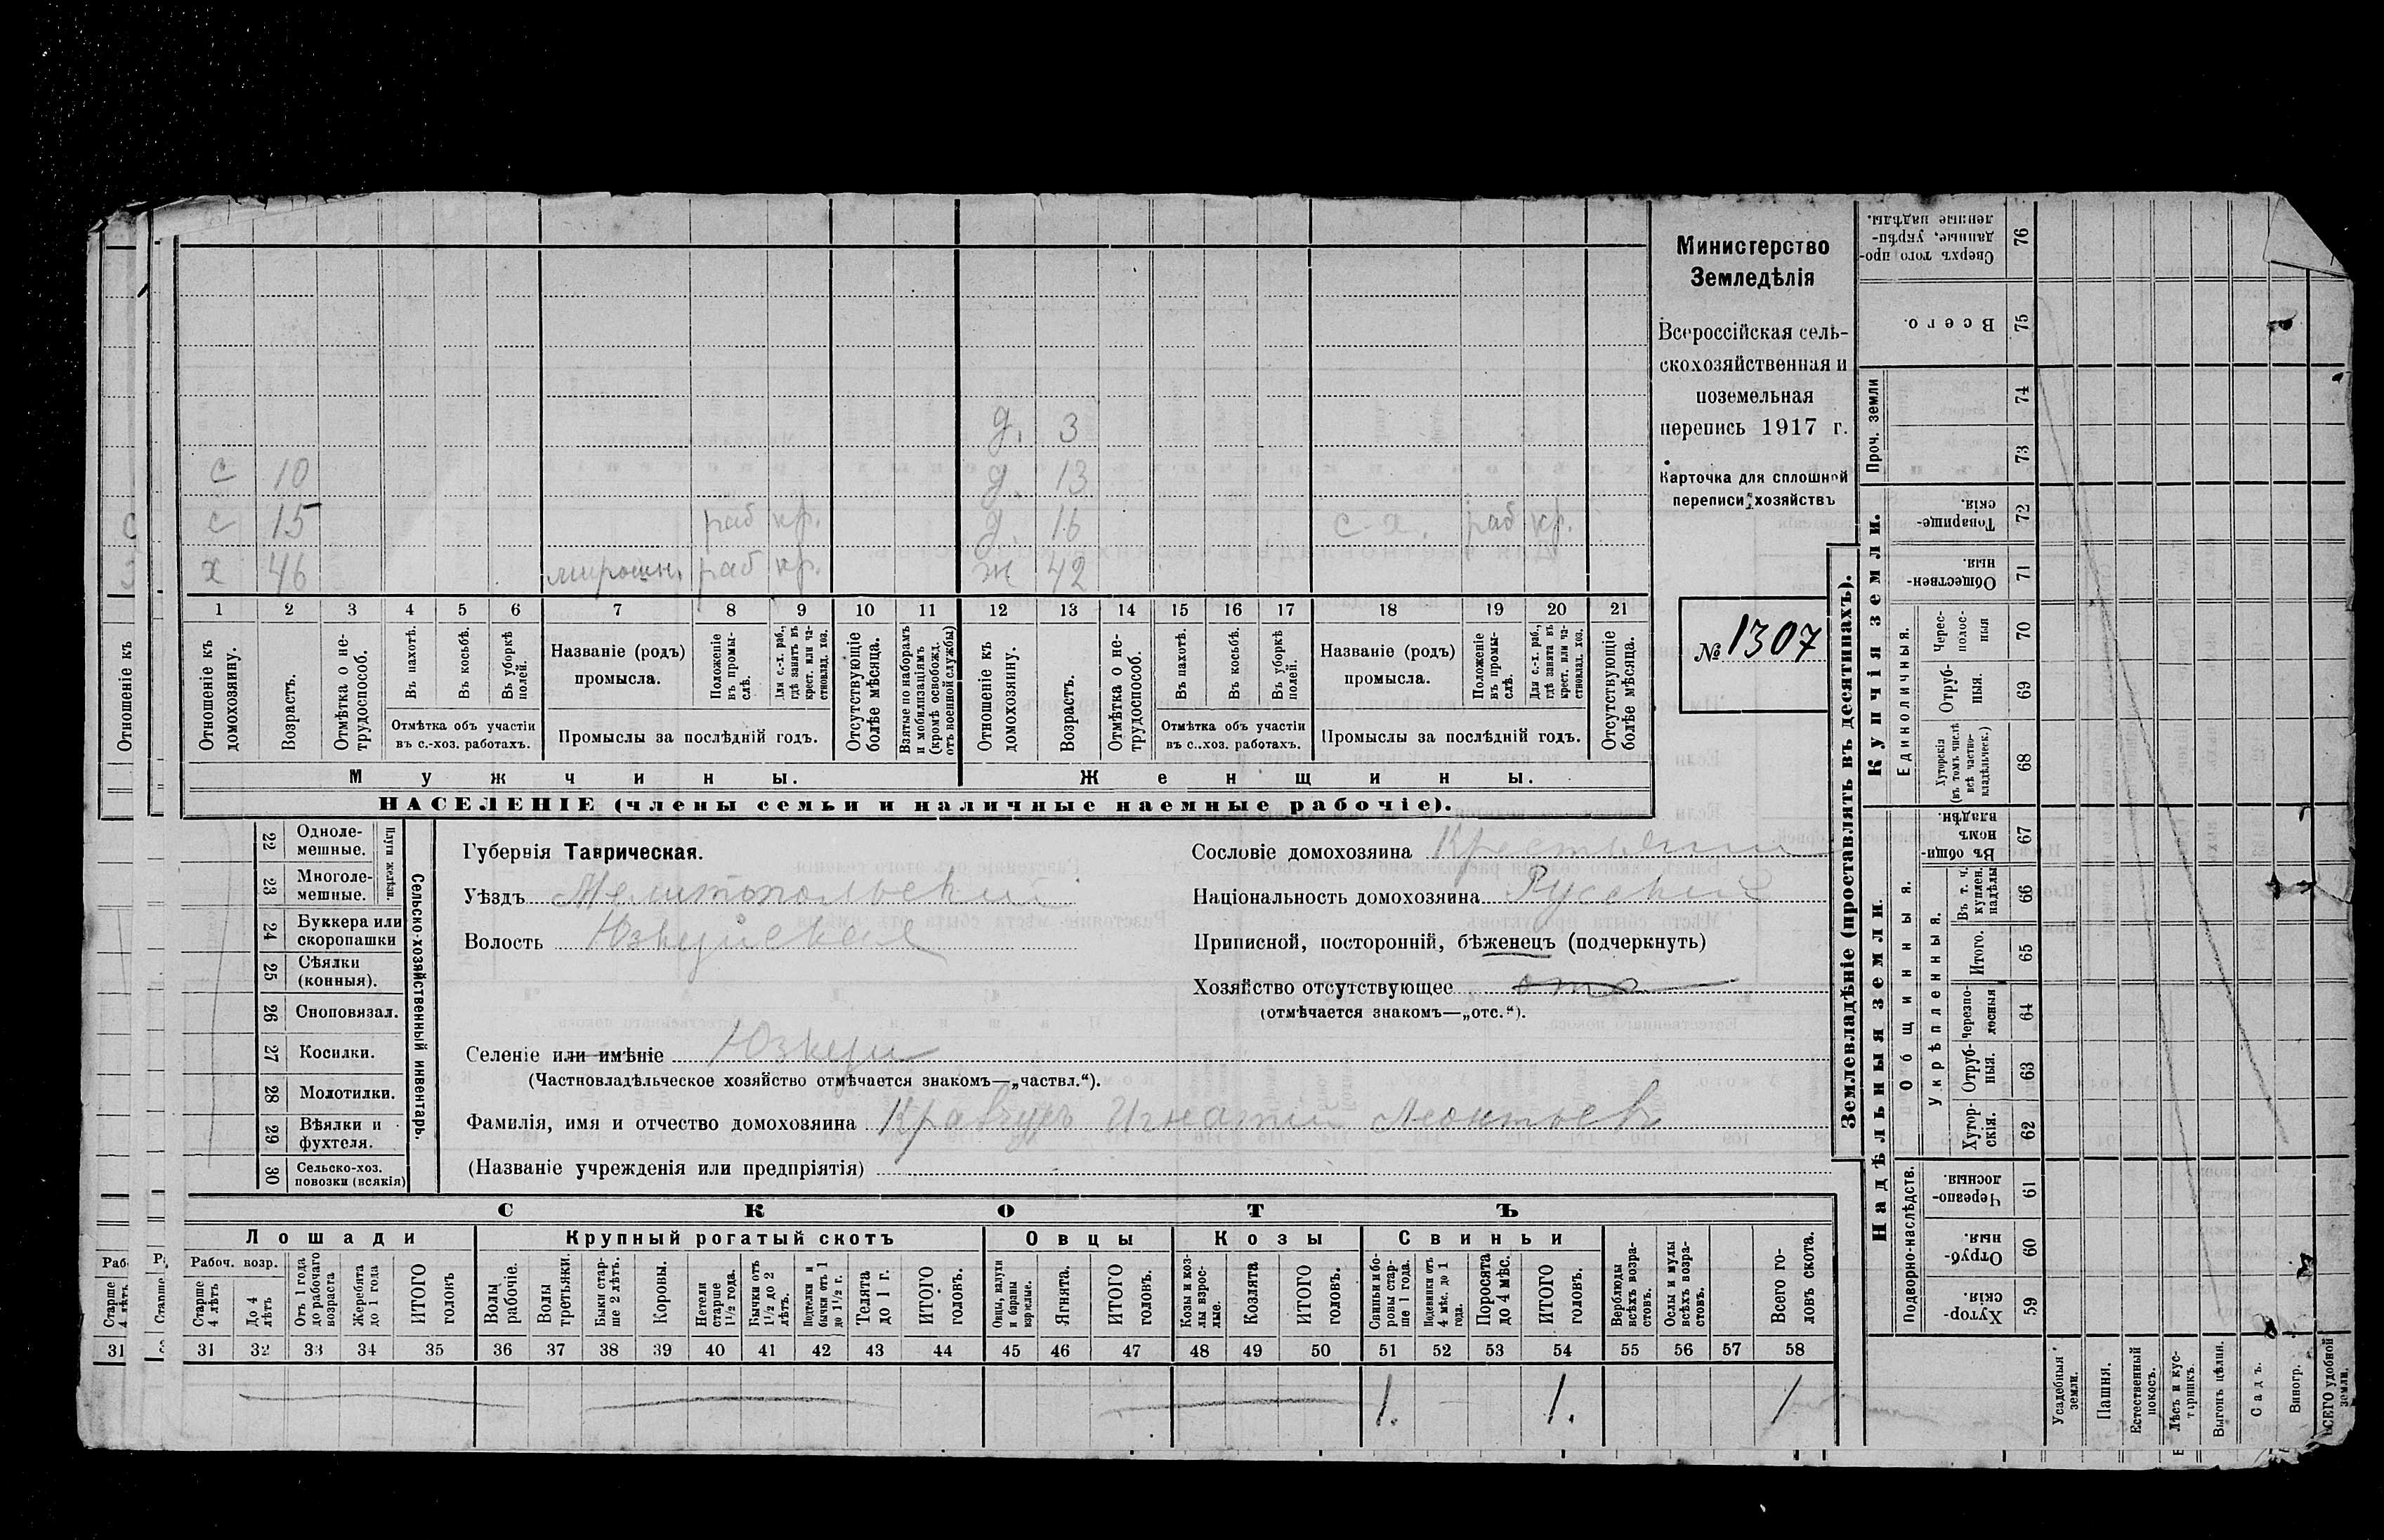 Министерство
Земледѣлія
Всероссійская сель-
скохозяйственная и
поземельная
перепись 1917 г.
Карточка для сплошной
переписи хозяйствъ
№ 1307
д. 3
с 10 д. 13
с 15 раб кр. д. 16 с-х. раб кр.
х 46 мирошн. раб кр. ж 42
1 2 3 4 5 6 7 8 9 10 11 12 13 14 15 16 17 18 19 20 21
Отношеніе къ
Отношеніе къ домохозяину.
Возрастъ.
Отмѣтка о не-трудоспособ.
Въ пахотѣ.
Въ косьбѣ.
Въ уборкѣ полей.
Отмѣтка объ участіи
въ с.-хоз. работахъ.
Названіе (родъ)
промысла.
Положеніе въ промы-слѣ.
Для с.-х. раб., гдѣ занятъ въ крест. или ча-стновлад. хоз.
Промыслы за послѣдній годъ.
Отсутствующіе болѣе мѣсяца.
Взятые по наборамъ и мобилизаціямъ (кромѣ освобожд. отъ военной службы)
Отношеніе къ домохозяину.
Возрастъ.
Отмѣтка о не-трудоспособ.
Въ пахотѣ.
Въ косьбѣ.
Въ уборкѣ полей.
Отмѣтка объ участіи
въ с..хоз. работахъ.
Названіе (родъ)
промысла.
Положеніе въ промы-слѣ.
Для с.-х. раб., гдѣ занята въ крест. или ча-стновлад. хоз.
Промыслы за послѣдній годъ.
Отсутствующіе болѣе мѣсяца.
Мужчины. Женщины.
НАСЕЛЕНІЕ (члены семьи и наличные наемные рабочіе).
Сельско-хозяйственный инвентарь.
Плуги желѣзн.
22 Одноле-мешные.
23 Многоле-мешные.
24 Буккера или скоропашки
25 Сѣялки (конныя).
26 Сноповязал.
27 Косилки.
28 Молотилки.
29 Вѣялки и фухтеля.
30 Сельско-хоз. повозки (всякія)
Губернія Таврическая.
Уѣздъ Мелитопольскій
Волость Юзкуйская
Сословіе домохозяина Крестьянин
Національность домохозяина Русскій
Приписной, посторонній, бѣженецъ (подчеркнуть)
Хозяйство отсутствующее
(отмѣчается знакомъ—„отс.“).
Селеніе или имѣніе Юзкуи
(Частновладѣльческое хозяйство отмѣчается знакомъ—„частвл.“).
Фамилія, имя и отчество домохозяина Кравецъ Игнатій Леонтьев
(Названіе учрежденія или предпріятія)
СКОТЪ
Лошади Крупный рогатый скотъ Овцы Козы Свиньи
Рабоч. возр.
Старше 4 лѣтъ
До 4 лѣтъ
Отъ 1 года до рабочаго возраста
Жеребята до 1 года
ИТОГО головъ
Волы рабочіе.
Волы третьяки.
Быки стар-ше 2 лѣтъ.
Коровы.
Нетели старше 1½ года.
Бычки отъ 1½ до 2 лѣтъ.
Подтелки и бычки отъ 1 до 1½ г.
Телята до 1 г.
ИТОГО головъ.
Овцы, валухи и бараны взрослые.
Ягнята.
ИТОГО головъ.
Козы и коз-лы взрос-лые.
Козлята
ИТОГО головъ.
Свиньи и бо-ровы стар-ше 1 года.
Подсвинки отъ 4 мѣс. до 1 года.
Поросята до 4 мѣс.
ИТОГО головъ.
Верблюды всѣхъ возра-стовъ.
Ослы и мулы всѣхъ возра-стовъ.
Всего го-ловъ скота.
31 31 32 33 34 35 36 37 38 39 40 41 42 43 44 45 46 47 48 49 50 51 52 53 54 55 56 57 58
1. 1. 1
Землевладѣніе (проставлять въ десятинахъ).
Сверхъ того про-данные, укрѣп-ленные надѣлы. 76
Всего. 75
Проч. земли
74
73
Купчія земли.
Товарище-скія. 72
Обществен-ныя. 71
Единоличныя.
Черес-полос-ныя 70
Отруб-ныя. 69
Хуторскія (въ томъ числѣ всѣ частно-владѣльческ.) 68
Надѣльныя земли.
Общинныя.
Въ общи-номъ владѣн. 67
Укрѣпленныя.
Въ т. ч. куплен. надѣлы 66
Итого. 65
Черезпо-лосныя 64
Отруб-ныя. 63
Хутор-скія. 62
Подворно-наслѣдств.
Черезпо-лосныя. 61
Отруб-ныя. 60
Хутор-скія. 59
Усадебныя земли.
Пашня.
Естественный покосъ.
Лѣсъ и кус-тарникъ.
Выгонъ цѣлин.
Садъ.
Виногр.
ВСЕГО удобной земли.